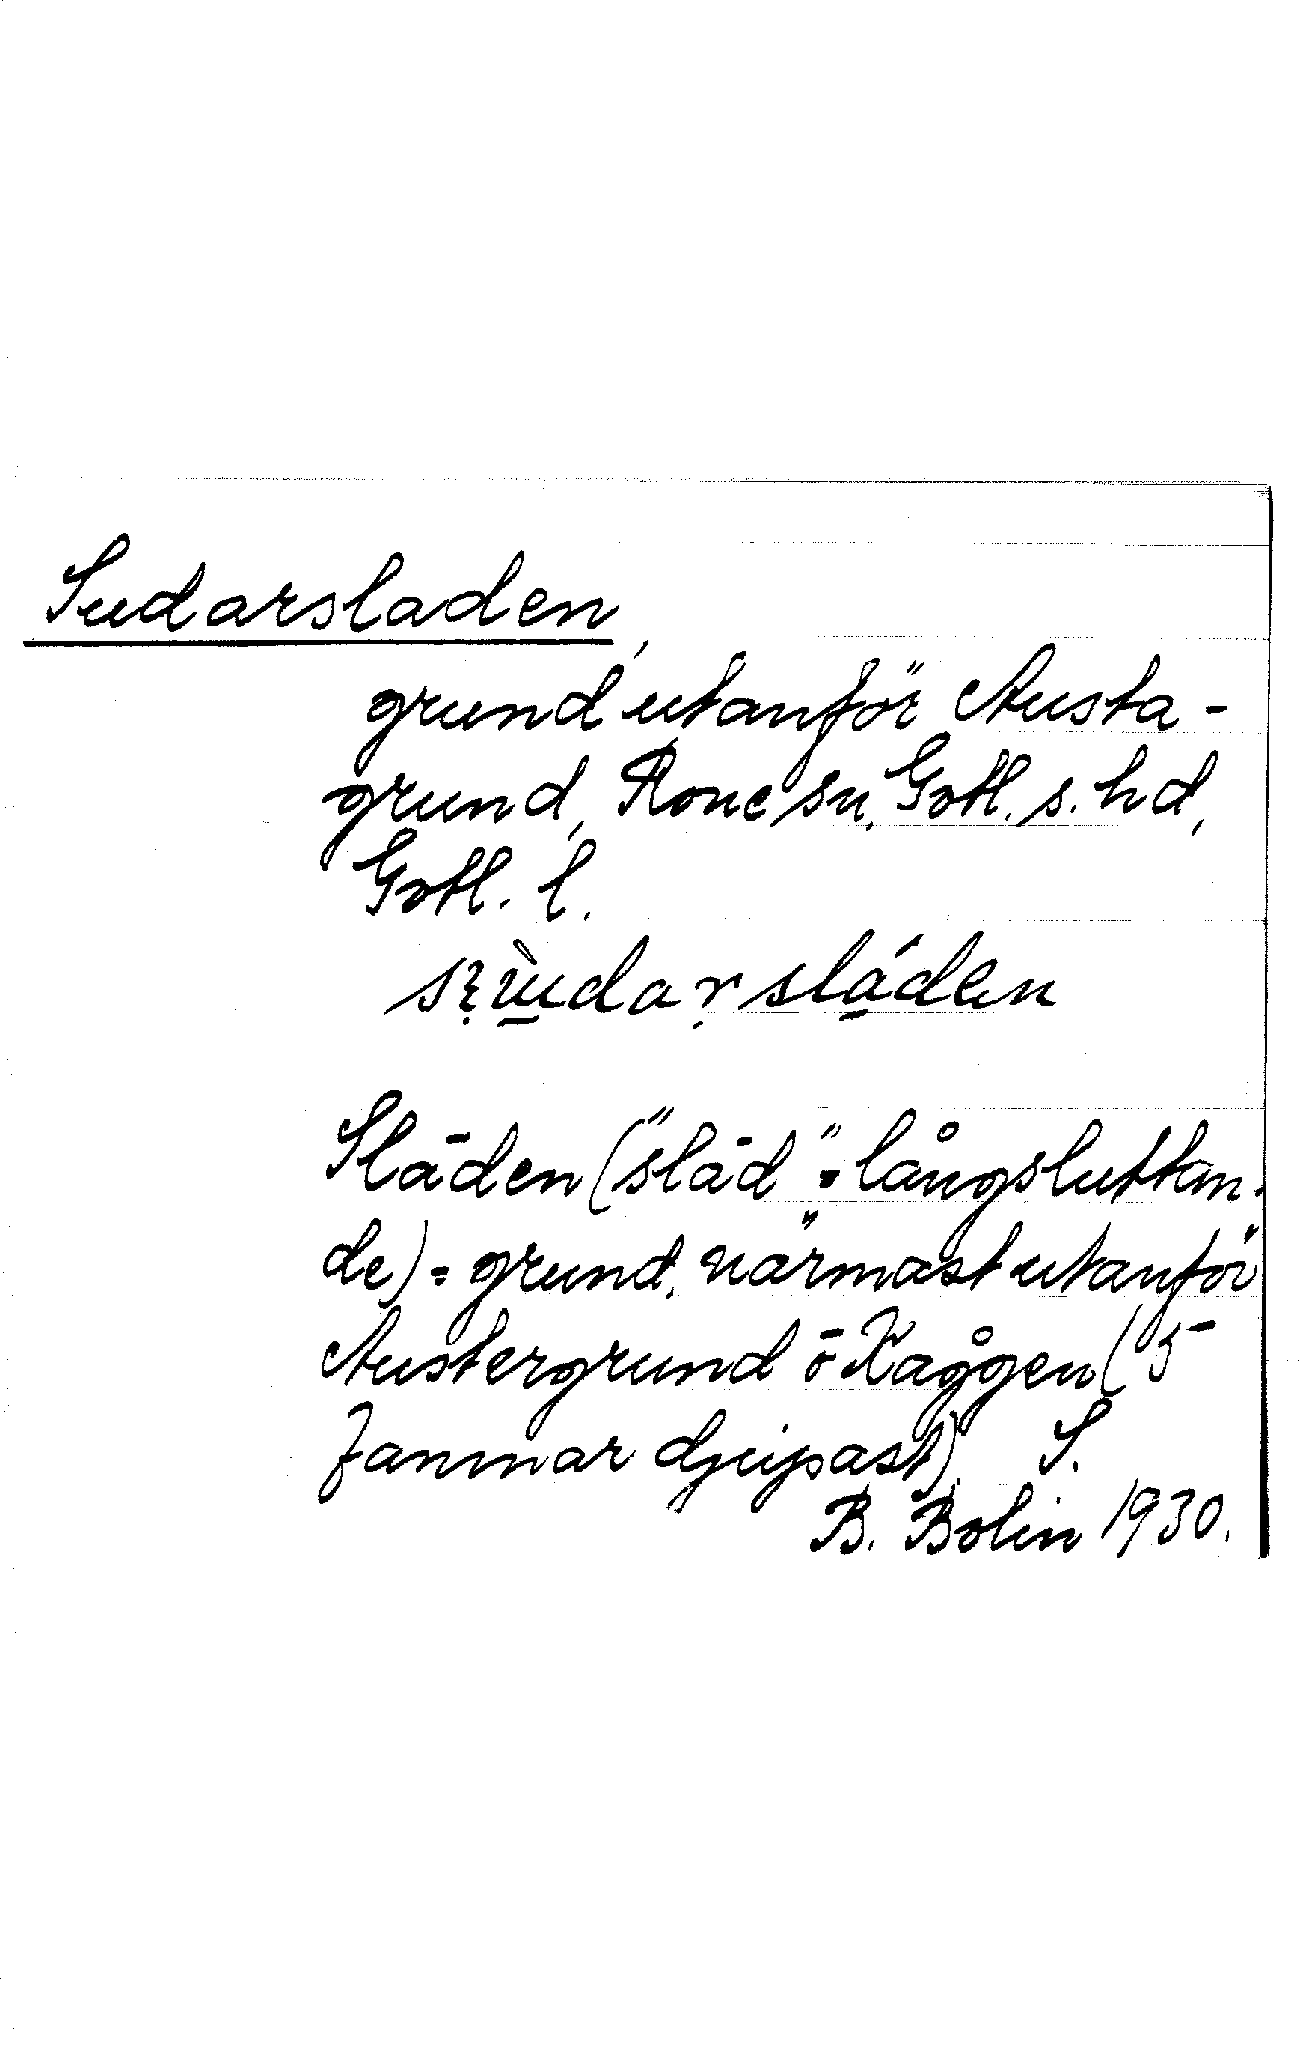 Sudarsladen,
grund utanför Austa-
grund, Rone sn, Gotl. s. hd,
Gotl. l.
sládεn
Släden ("släd" = långsluttan-
de) = grund, närmast utanför
Austergrund ō Kaggen (5
famnar djupast) S.
B. Bolin 1930.